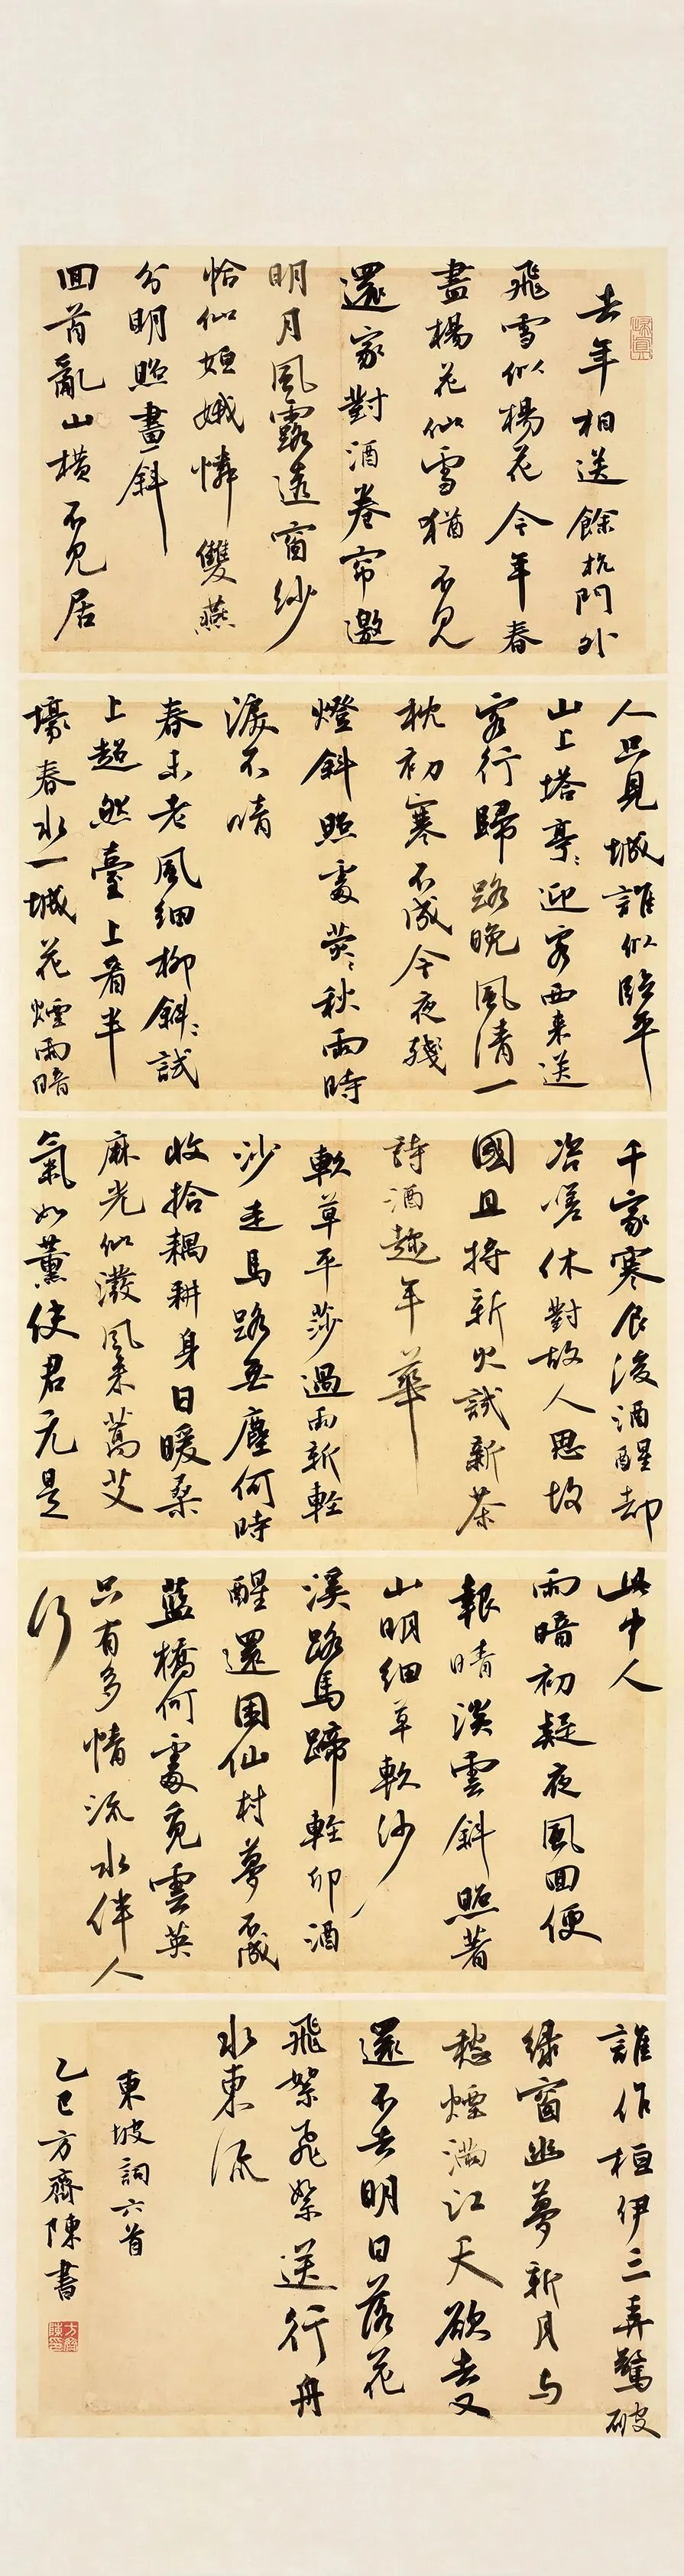 去年相送餘杭門外
飛雪似楊花今年春
盡楊花似雪猶不見
還家對酒卷帘邀
明月風露透窗紗
恰似姮娥憐雙燕
分明照畫斜
回首亂山橫不見居
人只見城誰似臨平
山上塔亭〻迎客西來送
客行歸路晚風清一
枕初寒不成今夜殘
燈斜照處熒〻秋雨時
淚不晴
春未老風細柳斜〻試
上超然臺上看半
壕春水一城花煙雨暗
千家寒食後酒醒却
咨嗟休對故人思故
國且將新火試新茶
詩酒趁年華
軟草平莎過雨新輕
沙走馬路無塵何時
收拾耦耕身日暖桑
麻光似潑風來蒿艾
氣如薰使君元是
此中人
雨暗初疑夜風回便
報晴淡雲斜照著
山明細草軟沙
溪路馬蹄輕卯酒
醒還困仙村夢不成
藍橋何處覓雲英
只有多情流水伴人
行
誰作桓伊三弄驚破
綠窗幽夢新月與
愁煙滿江天欲去又
還不去明日落花
飛絮飛絮送行舟
水東流
東坡詞六首
乙巳方齊陳書